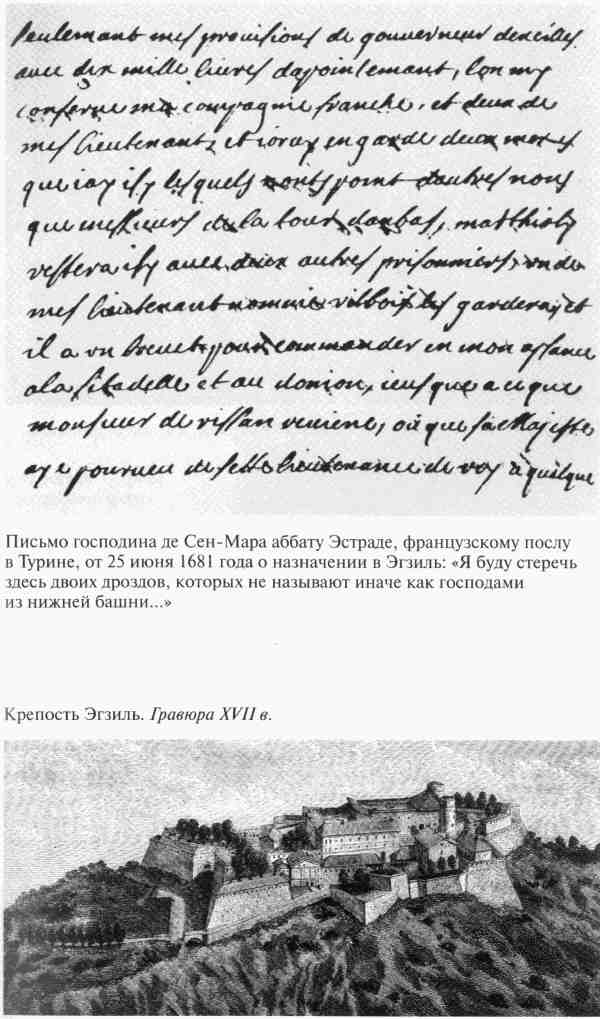 seulemant mes provisions de gouverneur dexilles
avec dix mille livres dapointemant, lon my
conserve ma compagnie franche, et deux de
mes lieutenants, etioray en garde deux merles
que iay isy lesquels nonts point dautres noms
que messieurs de la tour danbas, matthioly
restera isy avec deux autres prisonniers, un de
mes lieutenant nommé villebois les garderas, et
il a un brevet pour commander en mon absance
a la sitadelle et au donjon, jeusque a ce que
monsieur de rissan reviene, où que sa Majesté
aye pourveu de sette lieutenance de roy à quelque
Письмо господина де Сен-Мара аббату Эстраде, французскому послу
в Турине, от 25 июня 1681 года о назначении в Эгзиль: «Я буду стеречь
здесь двоих дроздов, которых не называют иначе как господами
из нижней башни...»
Крепость Эгзиль. Гравюра XVII в.